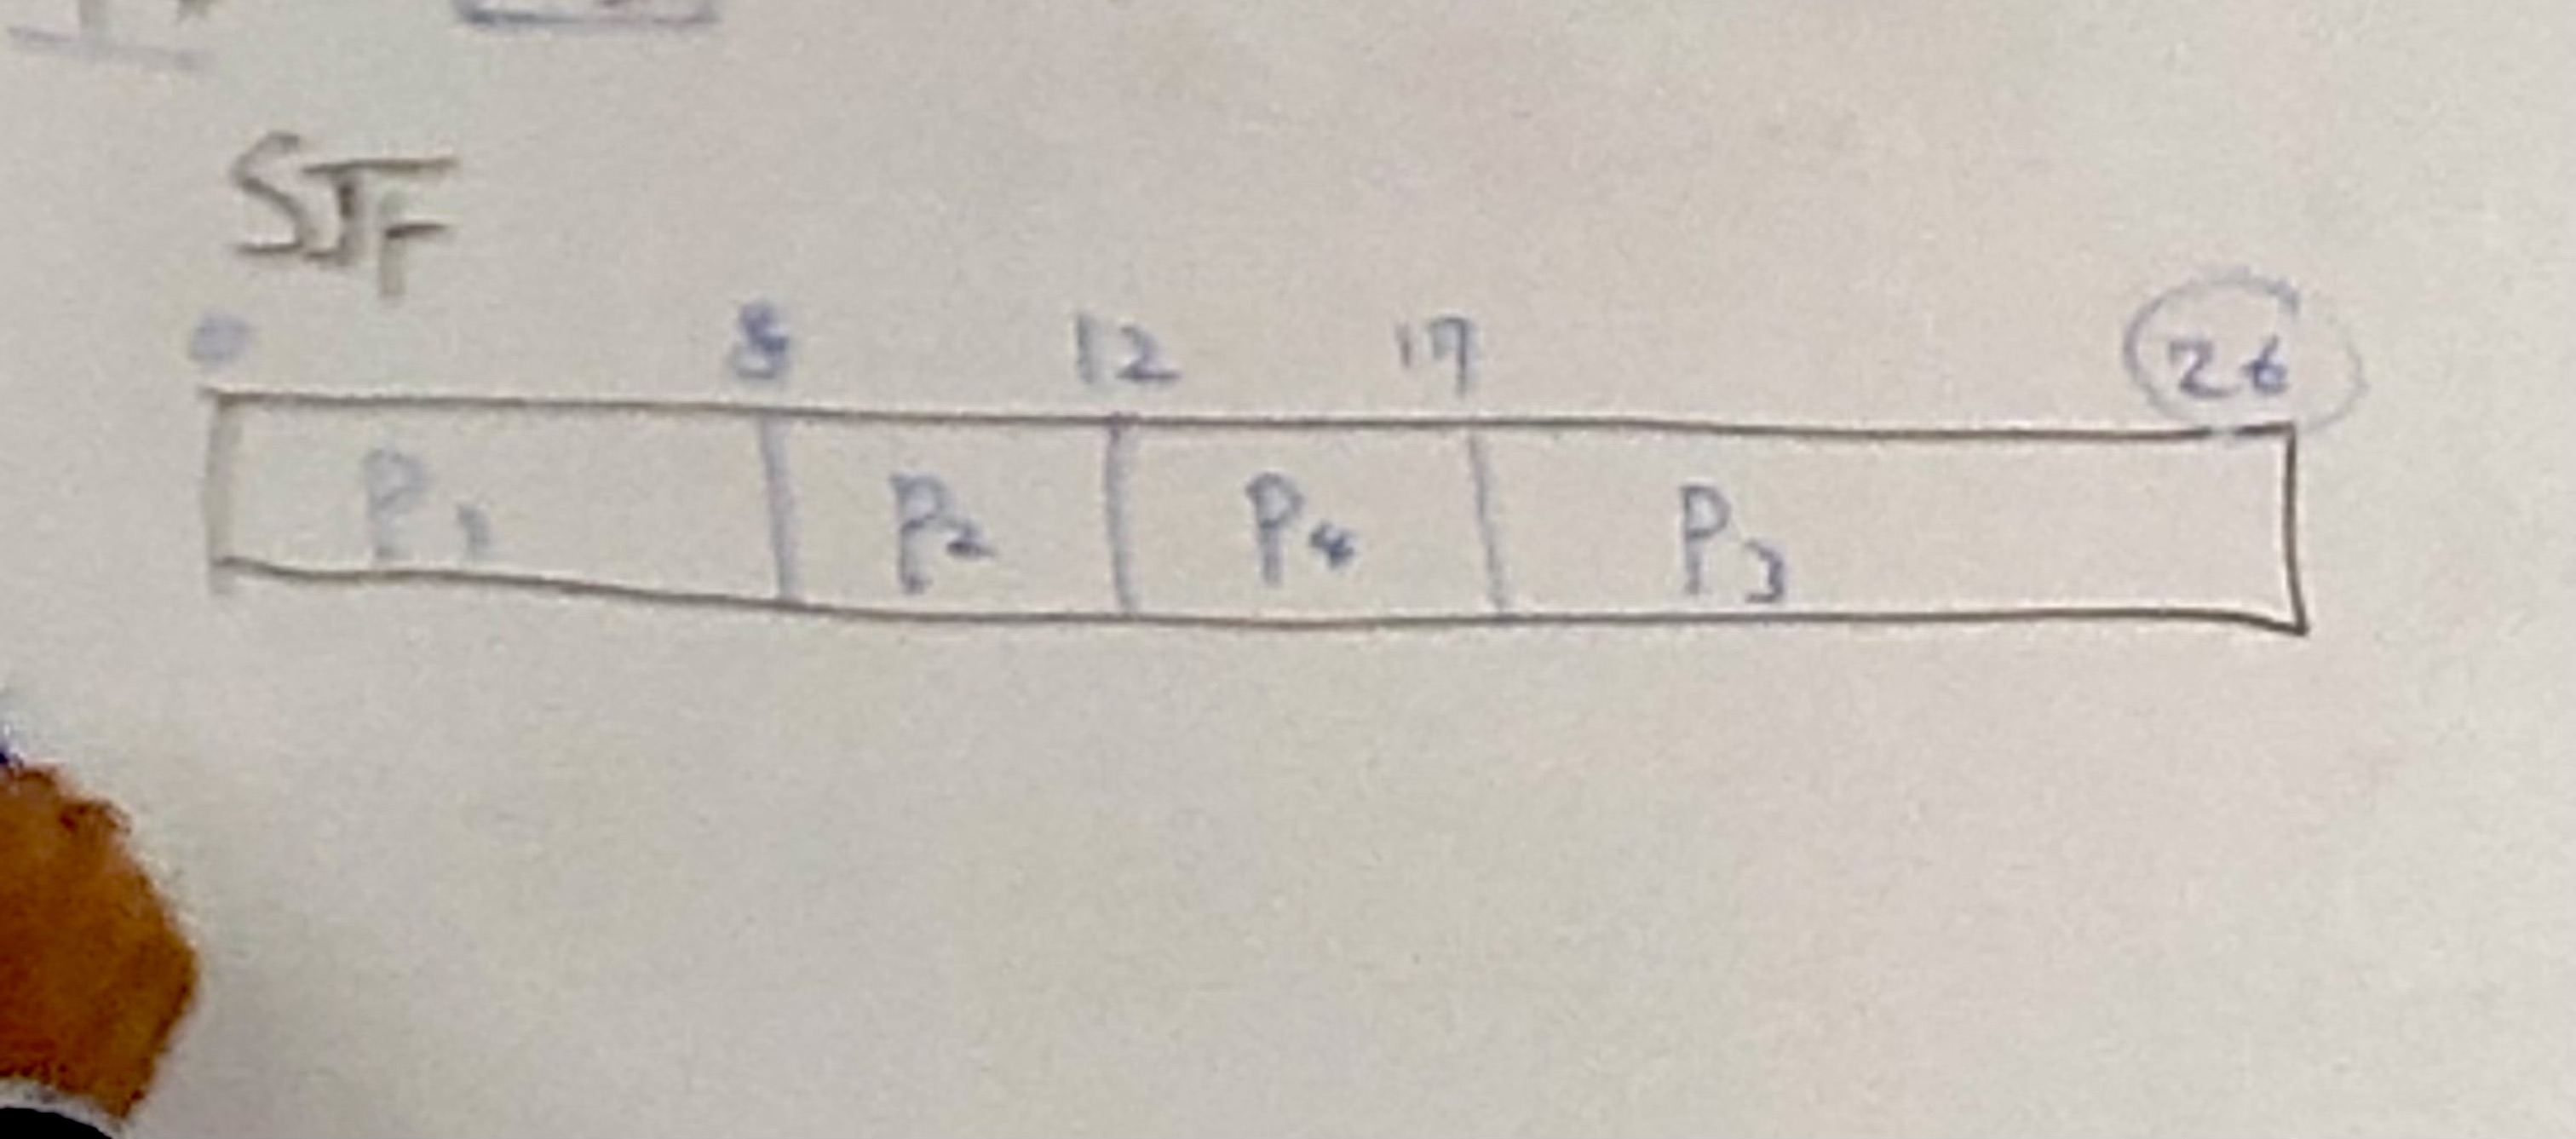 SJF
0 8 12 17 26
P1 P2 P4 P3